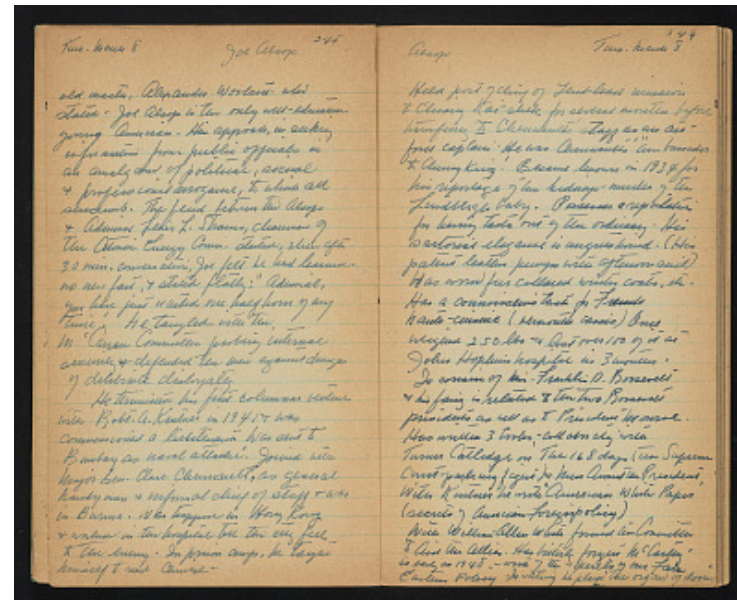 Tues. March 8 Joe Alsop 245
old master, Alexander Woollcott who
stated - Joe Alsop is the only well-educated
young American. His approach in seeking
information from public officials is
an amalgam of political, social
& professional arrogance, to which all
succumb. The feud between the Alsops
& Admiral Lewis L. Strauss, chairman of
the Atomic Energy Comm. started, when after
30 min. conversation, Joe felt he had learned
no new fact, & stated flatly: Admiral,
you have just wasted one half hour of my
time. He tangled with the
McCarran Committee probing internal
security & defended ten men against charges
of deliberate disloyalty
He terminated his first columns venture
with Robt. A. Kintner in 1941 & was
commissioned a Lieutenant. Was sent to
Bombay as naval attaché. Joined with
Major Gen. Claire Chennault, as general
handyman & informal chief of staff & was
in Burma. Was trapped in Hong Kong
& worked in the hospital till the city fell
to the enemy. In prison camp, he taught
himself to read Chinese -
Alsop Tues. March 8
Held post of chief of Lend-lease mission
to Chiang Kai-shek for several months before
transferring to Chennault's staff as an air
force captain. He was Chennault's ambassador
to Chungking. Became known in 1934 for
his reportage of the kidnap-murder of the
Lindbergh baby. Possesses a reputation
for having tastes out of the ordinary. His
sartorial elegance is
patent leather pumps with afternoon
Has worn fur collared winter coats, etc.
Has a taste for French
haute-cuisine (vermouth cassis) Once
weighed 250 lbs & lost over 100 of it at
Johns Hopkins hospital in 3 months.
Is cousin of Franklin D. Roosevelt
& his family is related to the two Roosevelt
presidents as well as to President Monroe.
Has written 3 books, - collaborated with
Turner Catledge on The 168 days (on Supreme
Court-packing) Men Around the President,
With Kintner he wrote American White Paper
(secrets of American foreign policy)
With William Allen White formed the Committee
to Aid the Allies. Has bitterly fought McCarthy
as early as 1945 - of the - of our Far
Eastern Policy